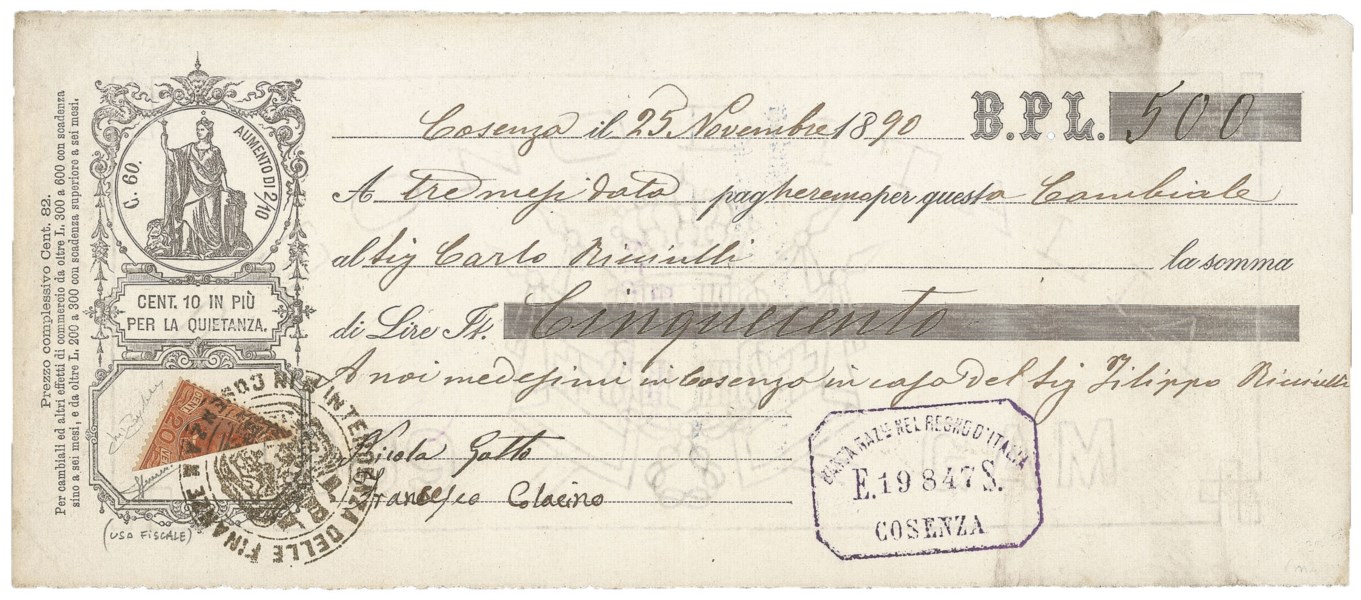 Prezzo complessivo Cent. 82.
Per cambiali ed altri effetti di commercio da oltre L. 300 a 600 con scadenza
sino a sei mesi, e da oltre L. 200 a 300 con scadenza superiore a sei mesi.
C. 60.
AUMENTO DI 2/10
CENT. 10 IN PIÙ
PER LA QUIETANZA.
20
(USO FISCALE)
INTENDENZA DELLE FINANZE IN COSENZA
Cosenza il 25 Novembre 1890 B.P.L. 500
A tre mesi data pagheremo per questa Cambiale
al Sig Carlo Ricciulli la somma
di Lire It. Cinquecento
A noi medesimi in Cosenza in casa del Sig Filippo Ricciulli
Nicola Gatto
Francesco Colacino
BANCA NAZ.LE NEL REGNO D'ITALIA
E. 19847 S.
COSENZA